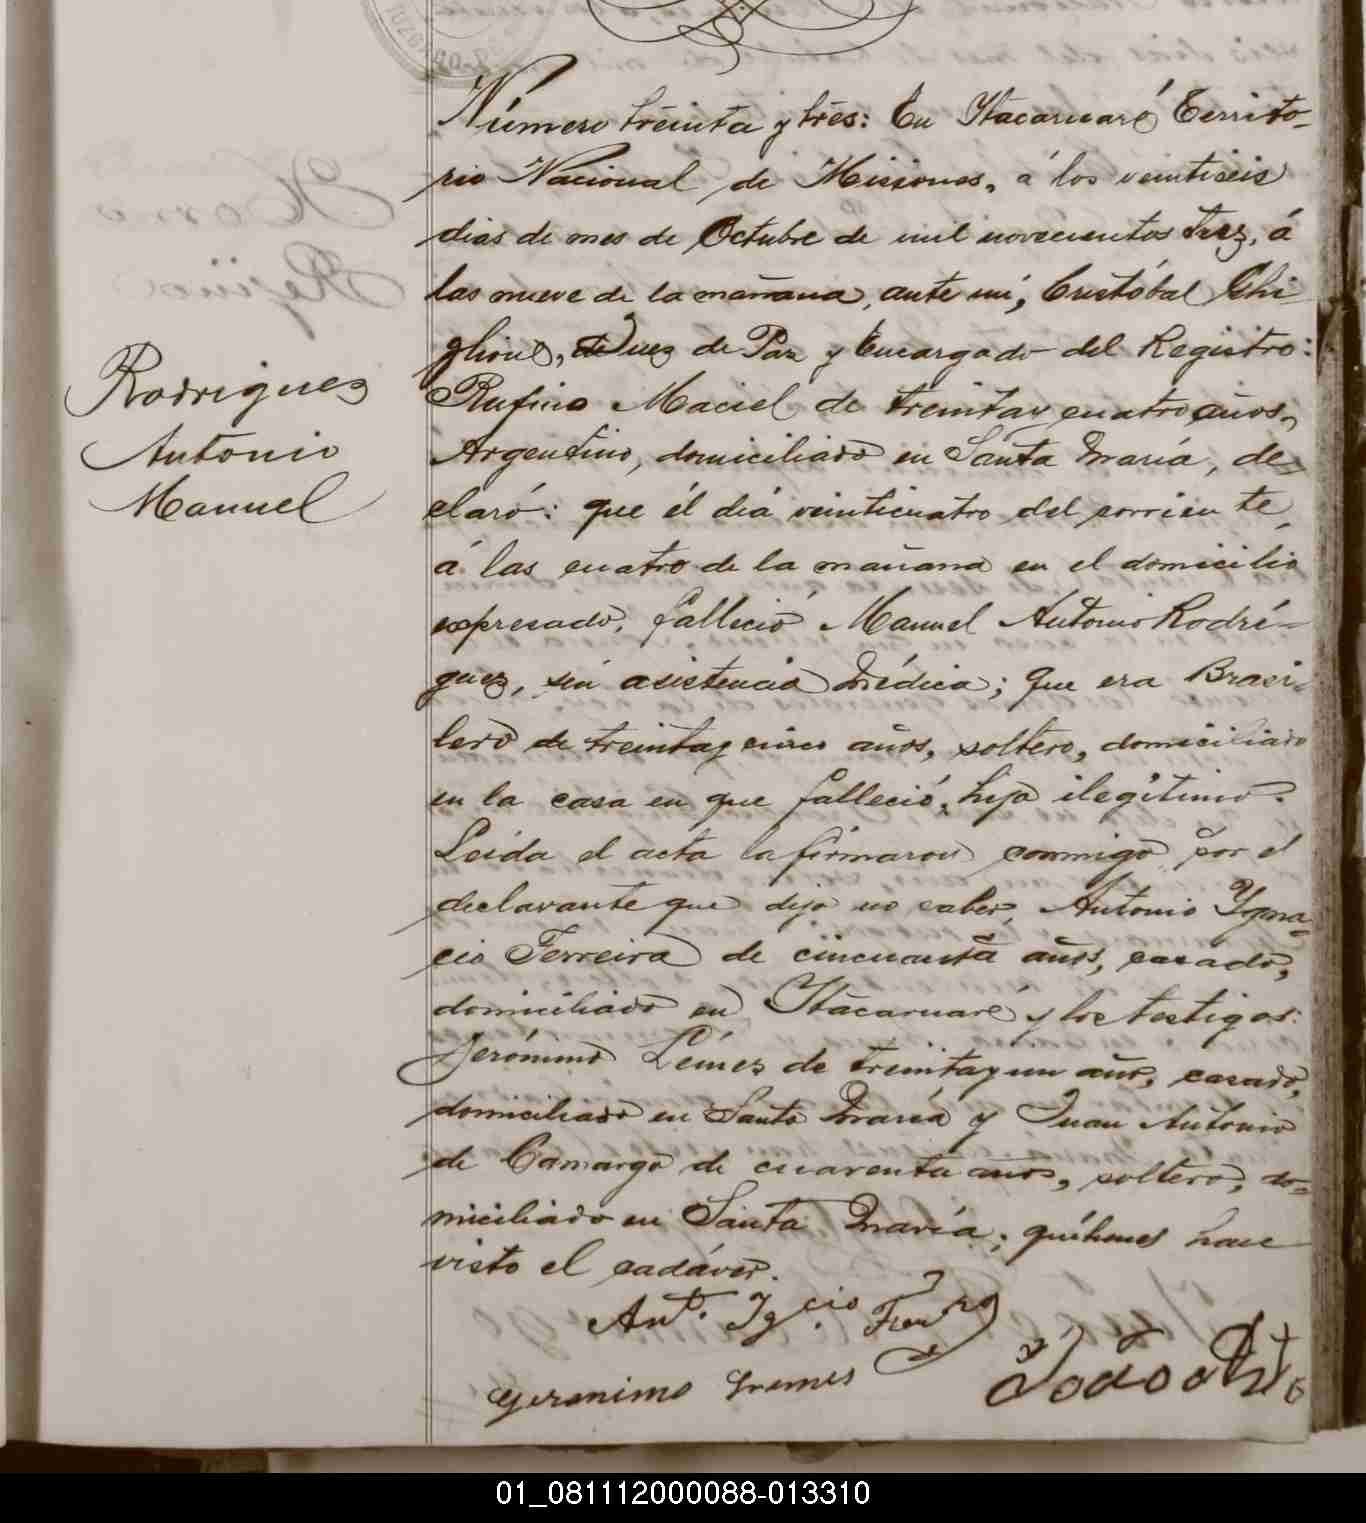 Número treinta y tres: En Itacaruaré Territo-
rio Nacional de Misiones, á los veintiseis
dias de mes de Octubre de mil novecientos trez, á
las nueve de la mañana, ante mí, Cristóbal Ghi
glione, Juez de Paz y Encargado del Registro:
Rufino Maciel de treinta y cuatro años,
Argentino, domiciliado en Santa María, de-
claró: que él diá veinticuatro del corriente
á las cuatro de la mañana en el domicilio
expresado, falleció Manuel Antonio Rodrí-
guez, sin asistencia médica; que era Brasi-
lero de treinta y cinco años, soltero, domiciliado
en la casa en que falleció, hijo ilegítimo.
Leida el acta la firmaron conmigo por el
declarante que dijo no saber, Antonio Ygna-
cio Ferreira de cincuenta años, casado,
domiciliado en Itacaruaré y los testigos:
Jerónimo Lémes de treinta y un año, casado,
domiciliado en Santa María y Juan Antonio
de Camargo de cuarenta años, soltero, do-
miciliado en Santa María; quiénes have
visto el cadáver.
Rodriguez
Antonio
Manuel
Ant. Igcio Ferrra
Geronimo Lemes
01_081112000088-013310